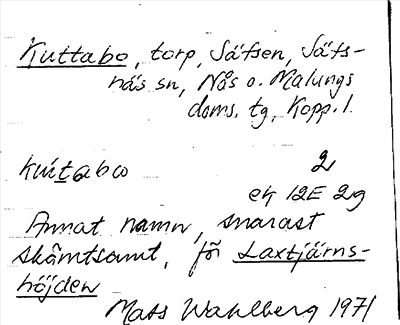 Kuttabo, torp, Säfsen, Säfs-
näs sn, Nås o. Malungs
doms. tg, Kopp. l.
kut̲abω 2
ek 12E 2g
Annat namn, snarast
skämtsamt, för Laxtjärns-
höjden
Mats Wahlberg 1971